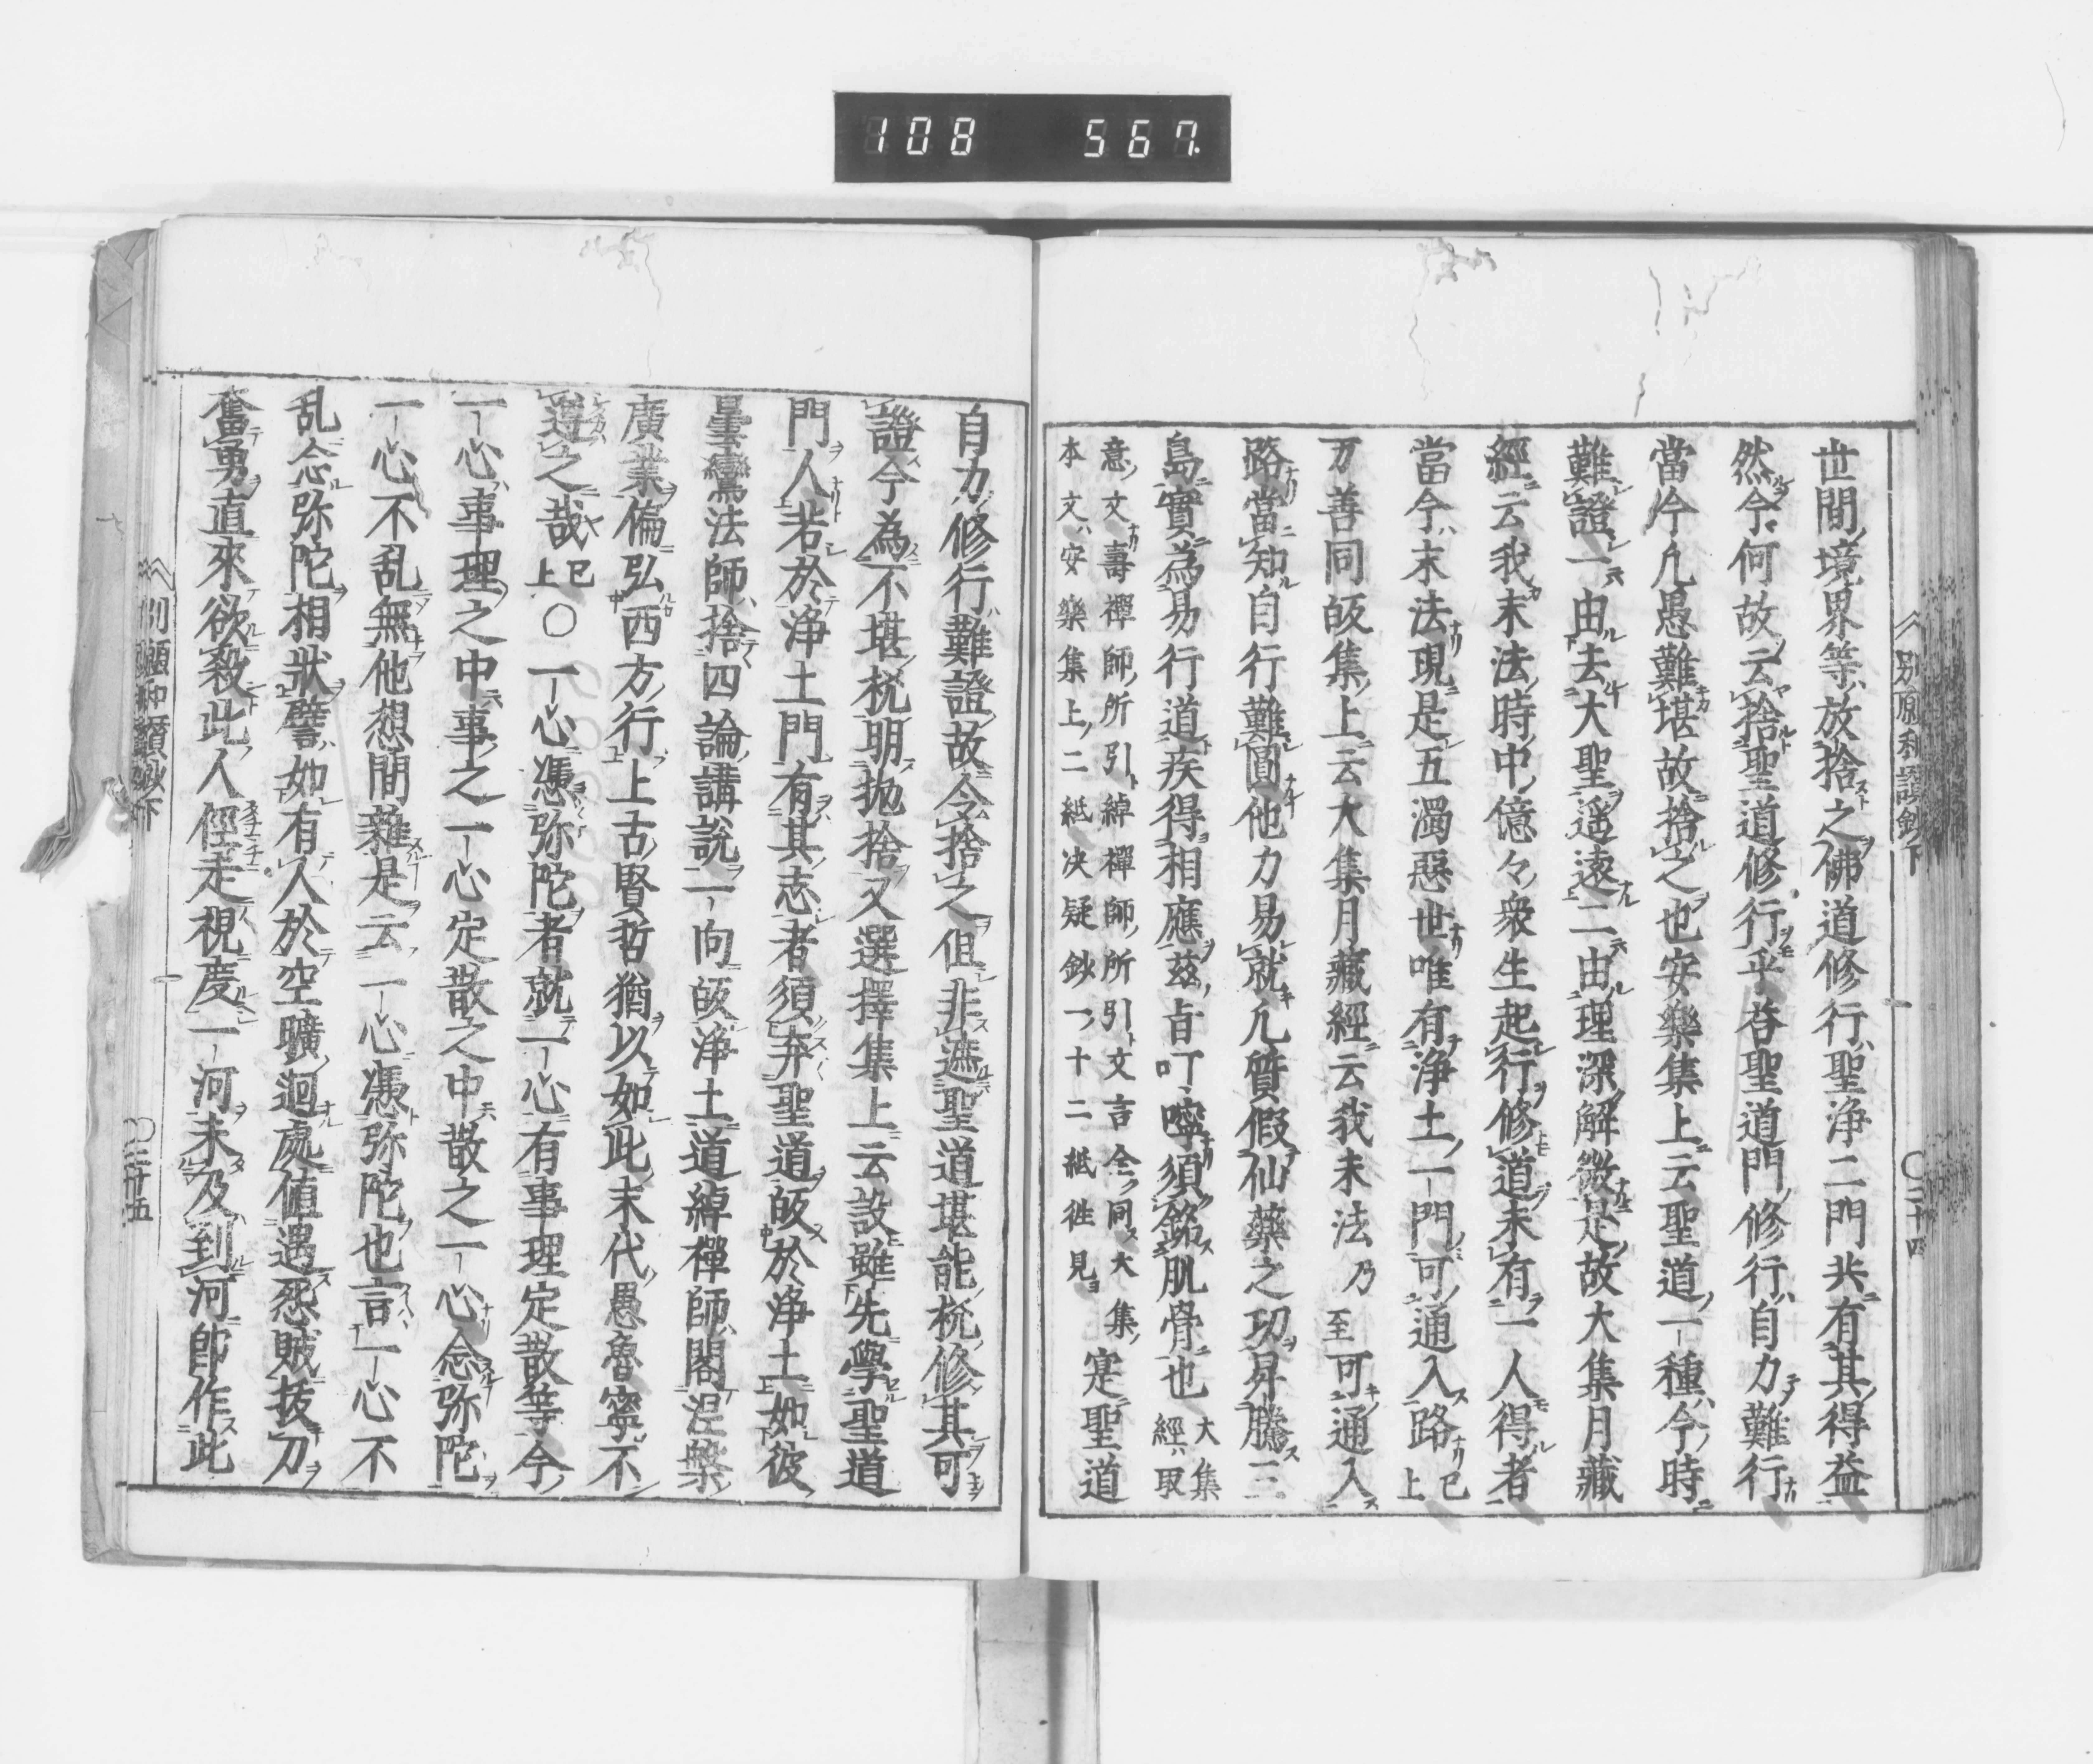 108 567.
別願和讃鈔下 〇二十四
世間境界等放捨之佛道修行聖浄二門共有其得益
然今何故云捨聖道修行乎荅聖道門修行自力難行
當今凢愚難堪故捨之也安樂集上云聖道一種今時
難證一由去大聖遥遠二由理深解微是故大集月藏
經云我末法時中億々衆生起行修道未有一人得者
當今末法現是五濁惡世唯有浄土一門可通入路已上
万善同皈集上云大集月藏經云我末法乃至可通入
路當知自行難圓他力易就凢質假仙藥之功昇騰三
島實為易行道疾得相應茲旨叮嚀須銘肌骨也大集經取
意文壽禪師所引綽禪師所引文言全同大集寔聖道
本文安樂集上二紙决疑鈔一十二紙徃見
自力修行難證故令捨之但非遮聖道堪能桄修其可
證今為不堪桄明抛捨又選擇集上云設雖先學聖道
門人若於浄土門有其志者須弃聖道皈於浄土如彼
曇鸞法師捨四論講説一向皈浄土道綽禪師閣涅槃
廣業偏弘西方行上古賢哲猶以如此末代愚魯寧不
遵之哉已上〇一心憑弥陀者就一心有事理定散等今
一心事理之中事之一心定散之中散之一心念弥陀
一心不乱無他想間雜是云一心憑弥陀也言一心不
乱念弥陀相狀譬如有人於空曠迥處値遇怨賊抜刀
奮勇直來欲殺此人徑走視度一河未及到河即作此
別願和讃鈔下 〇二十五